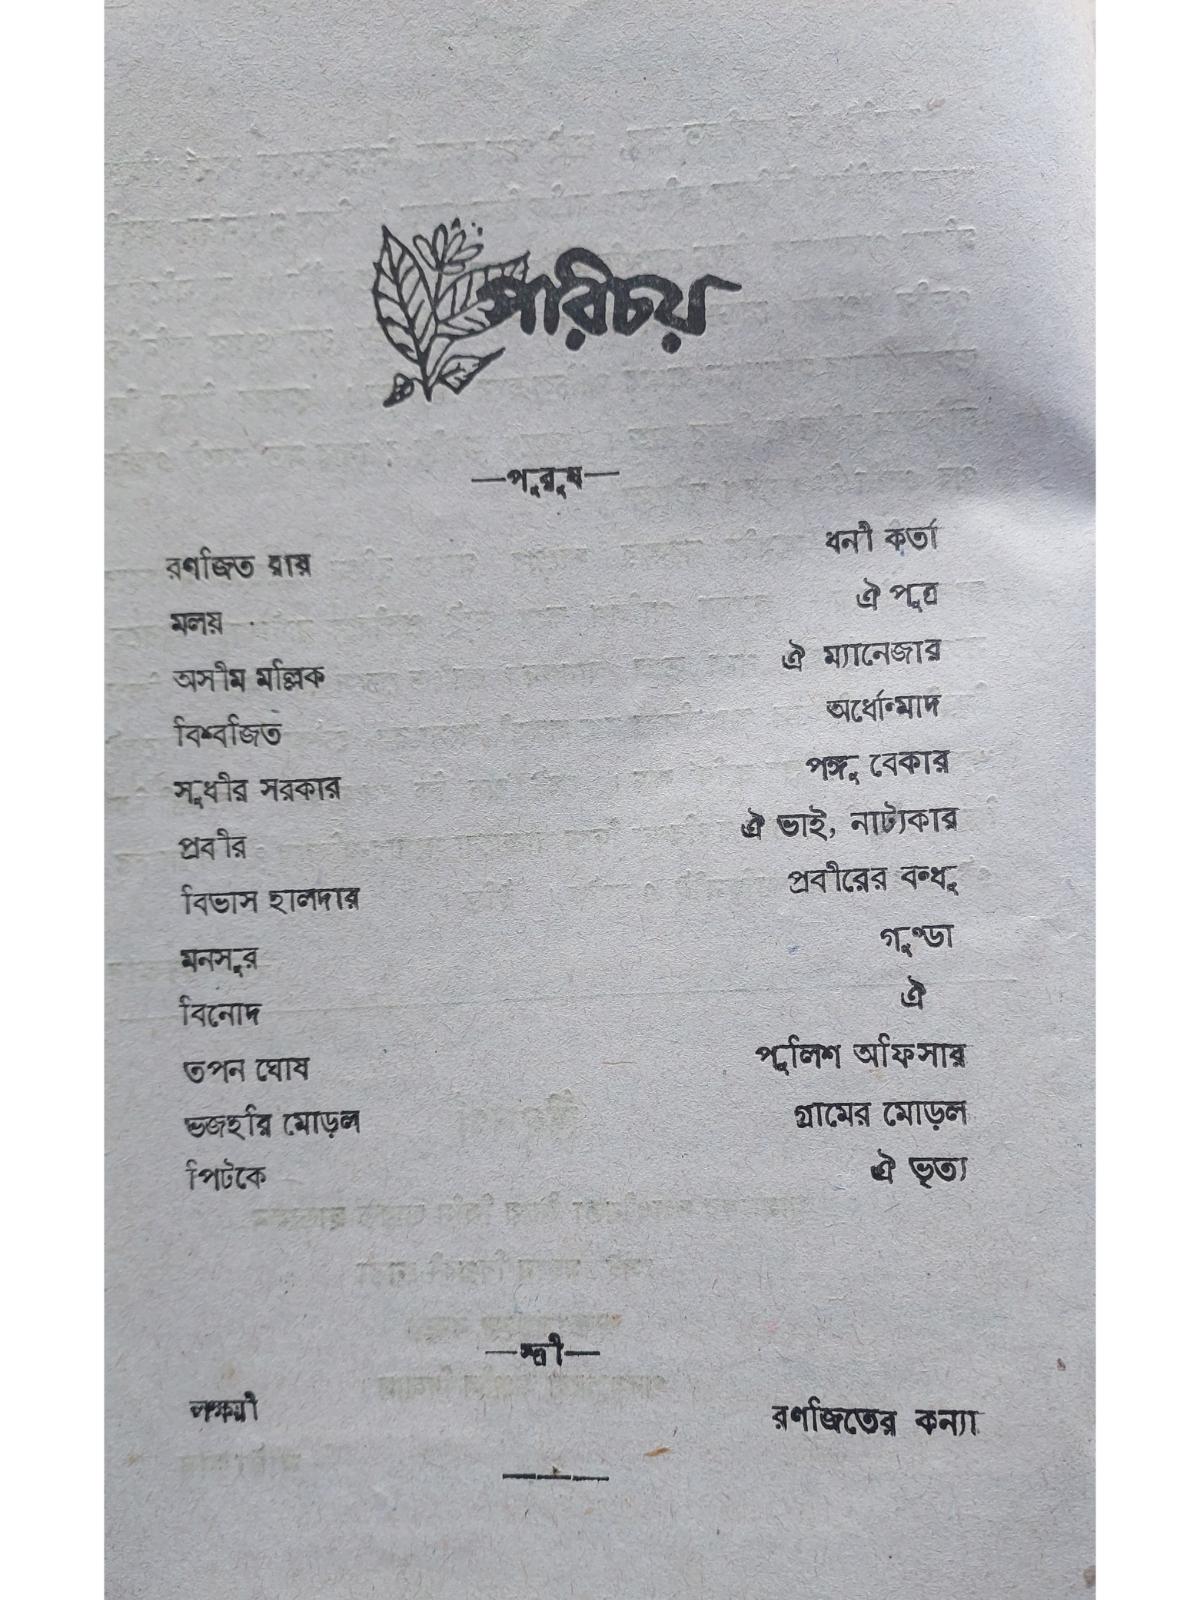 পরিচয়
—পুরুষ—
রণজিত রায় ধনী কর্তা
মলয় ঐ পুত্র
অসীম মল্লিক ঐ ম্যানেজার
বিশ্বজিত অর্ধোন্মাদ
সুধীর সরকার পঙ্গু বেকার
প্রবীর ঐ ভাই, নাট্যকার
বিভাস হালদার প্রবীরের বন্ধু
মনসুর গুণ্ডা
বিনোদ ঐ
তপন ঘোষ পুলিশ অফিসার
ভজহরি মোড়ল গ্রামের মোড়ল
পিটকে ঐ ভৃত্য
—স্ত্রী—
লক্ষ্মী রণজিতের কন্যা